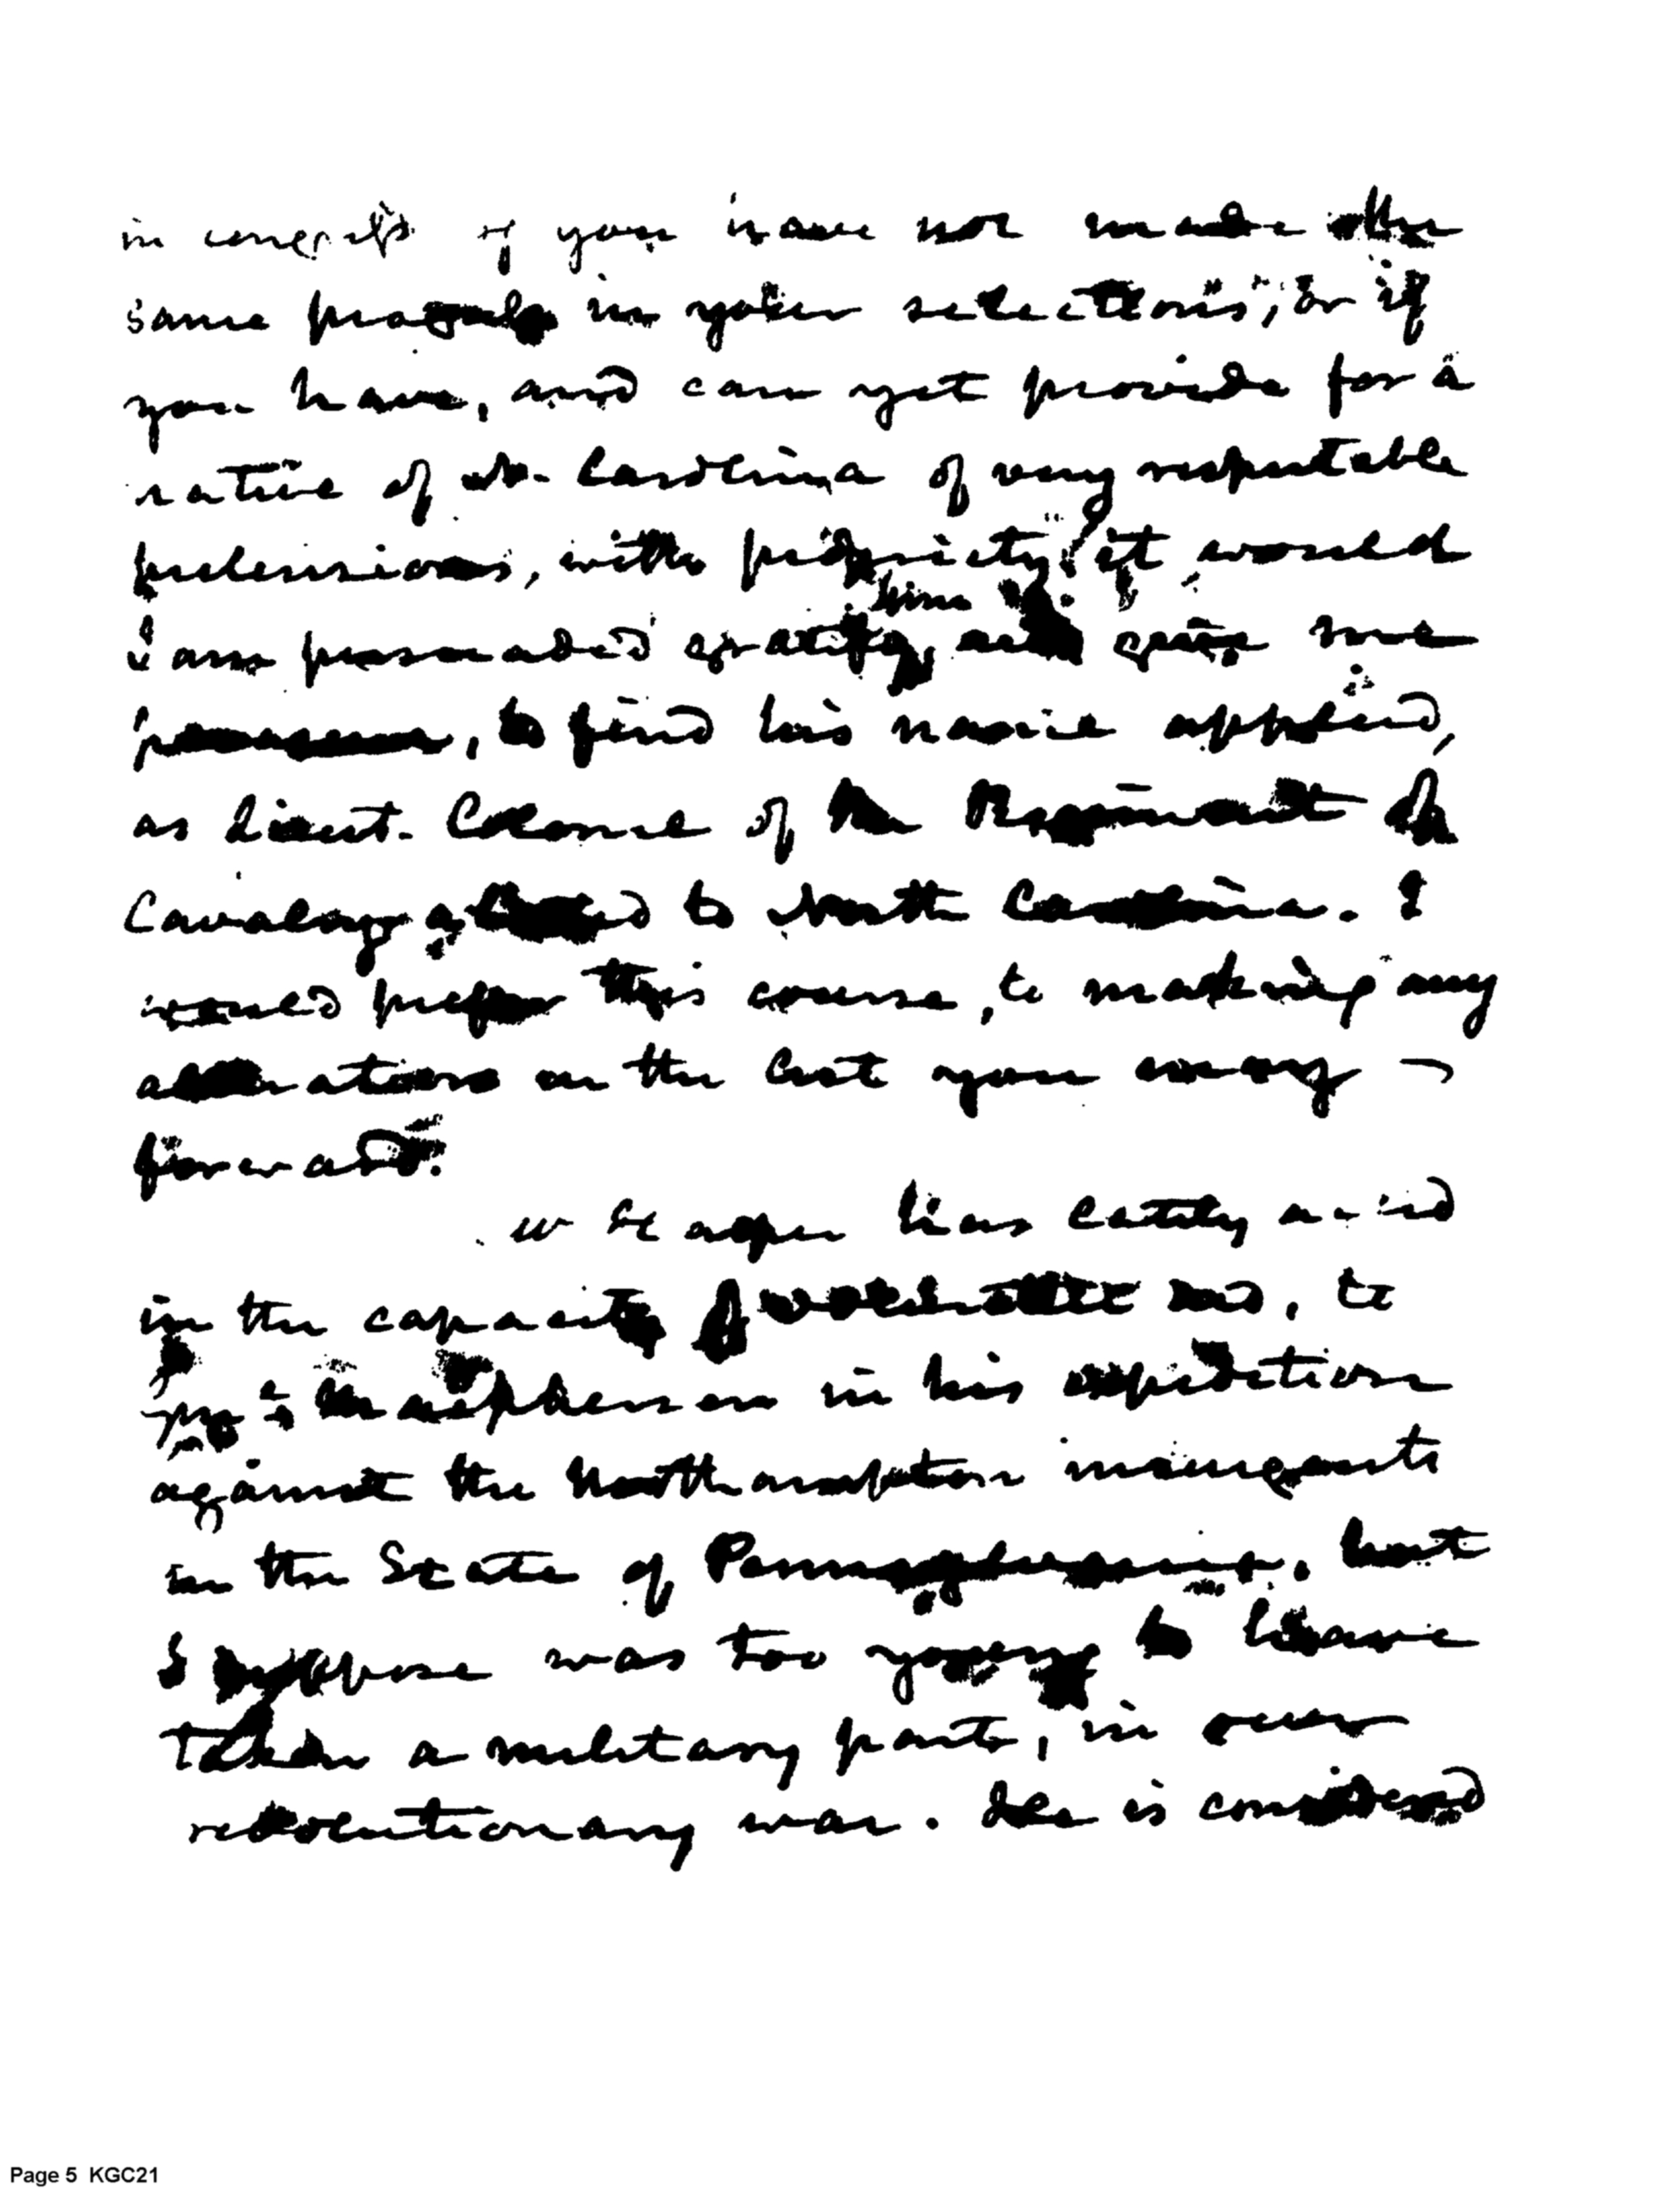 in merits if you have not made the
same in your selections, or if
you have, and can yet provide for a
native of N. Carolina of very respectable
pretensions, with propriety, it would
him
I am persuaded gratify, and give me
pleasure, to find his name
as Lieut. Colonel of the Regiment of
Cavalry allotted to North Carolina. I
would prefer this course, to making any
alterations in the list you may
forward.
Harper has lately
in the capacity of, to
in his expedition
against the Northampton insurgents
in the State of Pennsylvania, but
I suppose was too young to have
taken a military part, in our
revolutionary war. He is considered
Page 5 KGC21